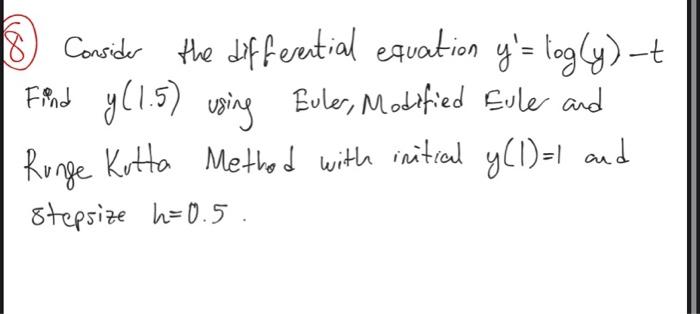 8 Consider the differential equation y'= log(y) -t
Find y(1.5) using Euler, Modified Euler and
Runge Kutta Method with initial y(1)=1 and
stepsize h=0.5.